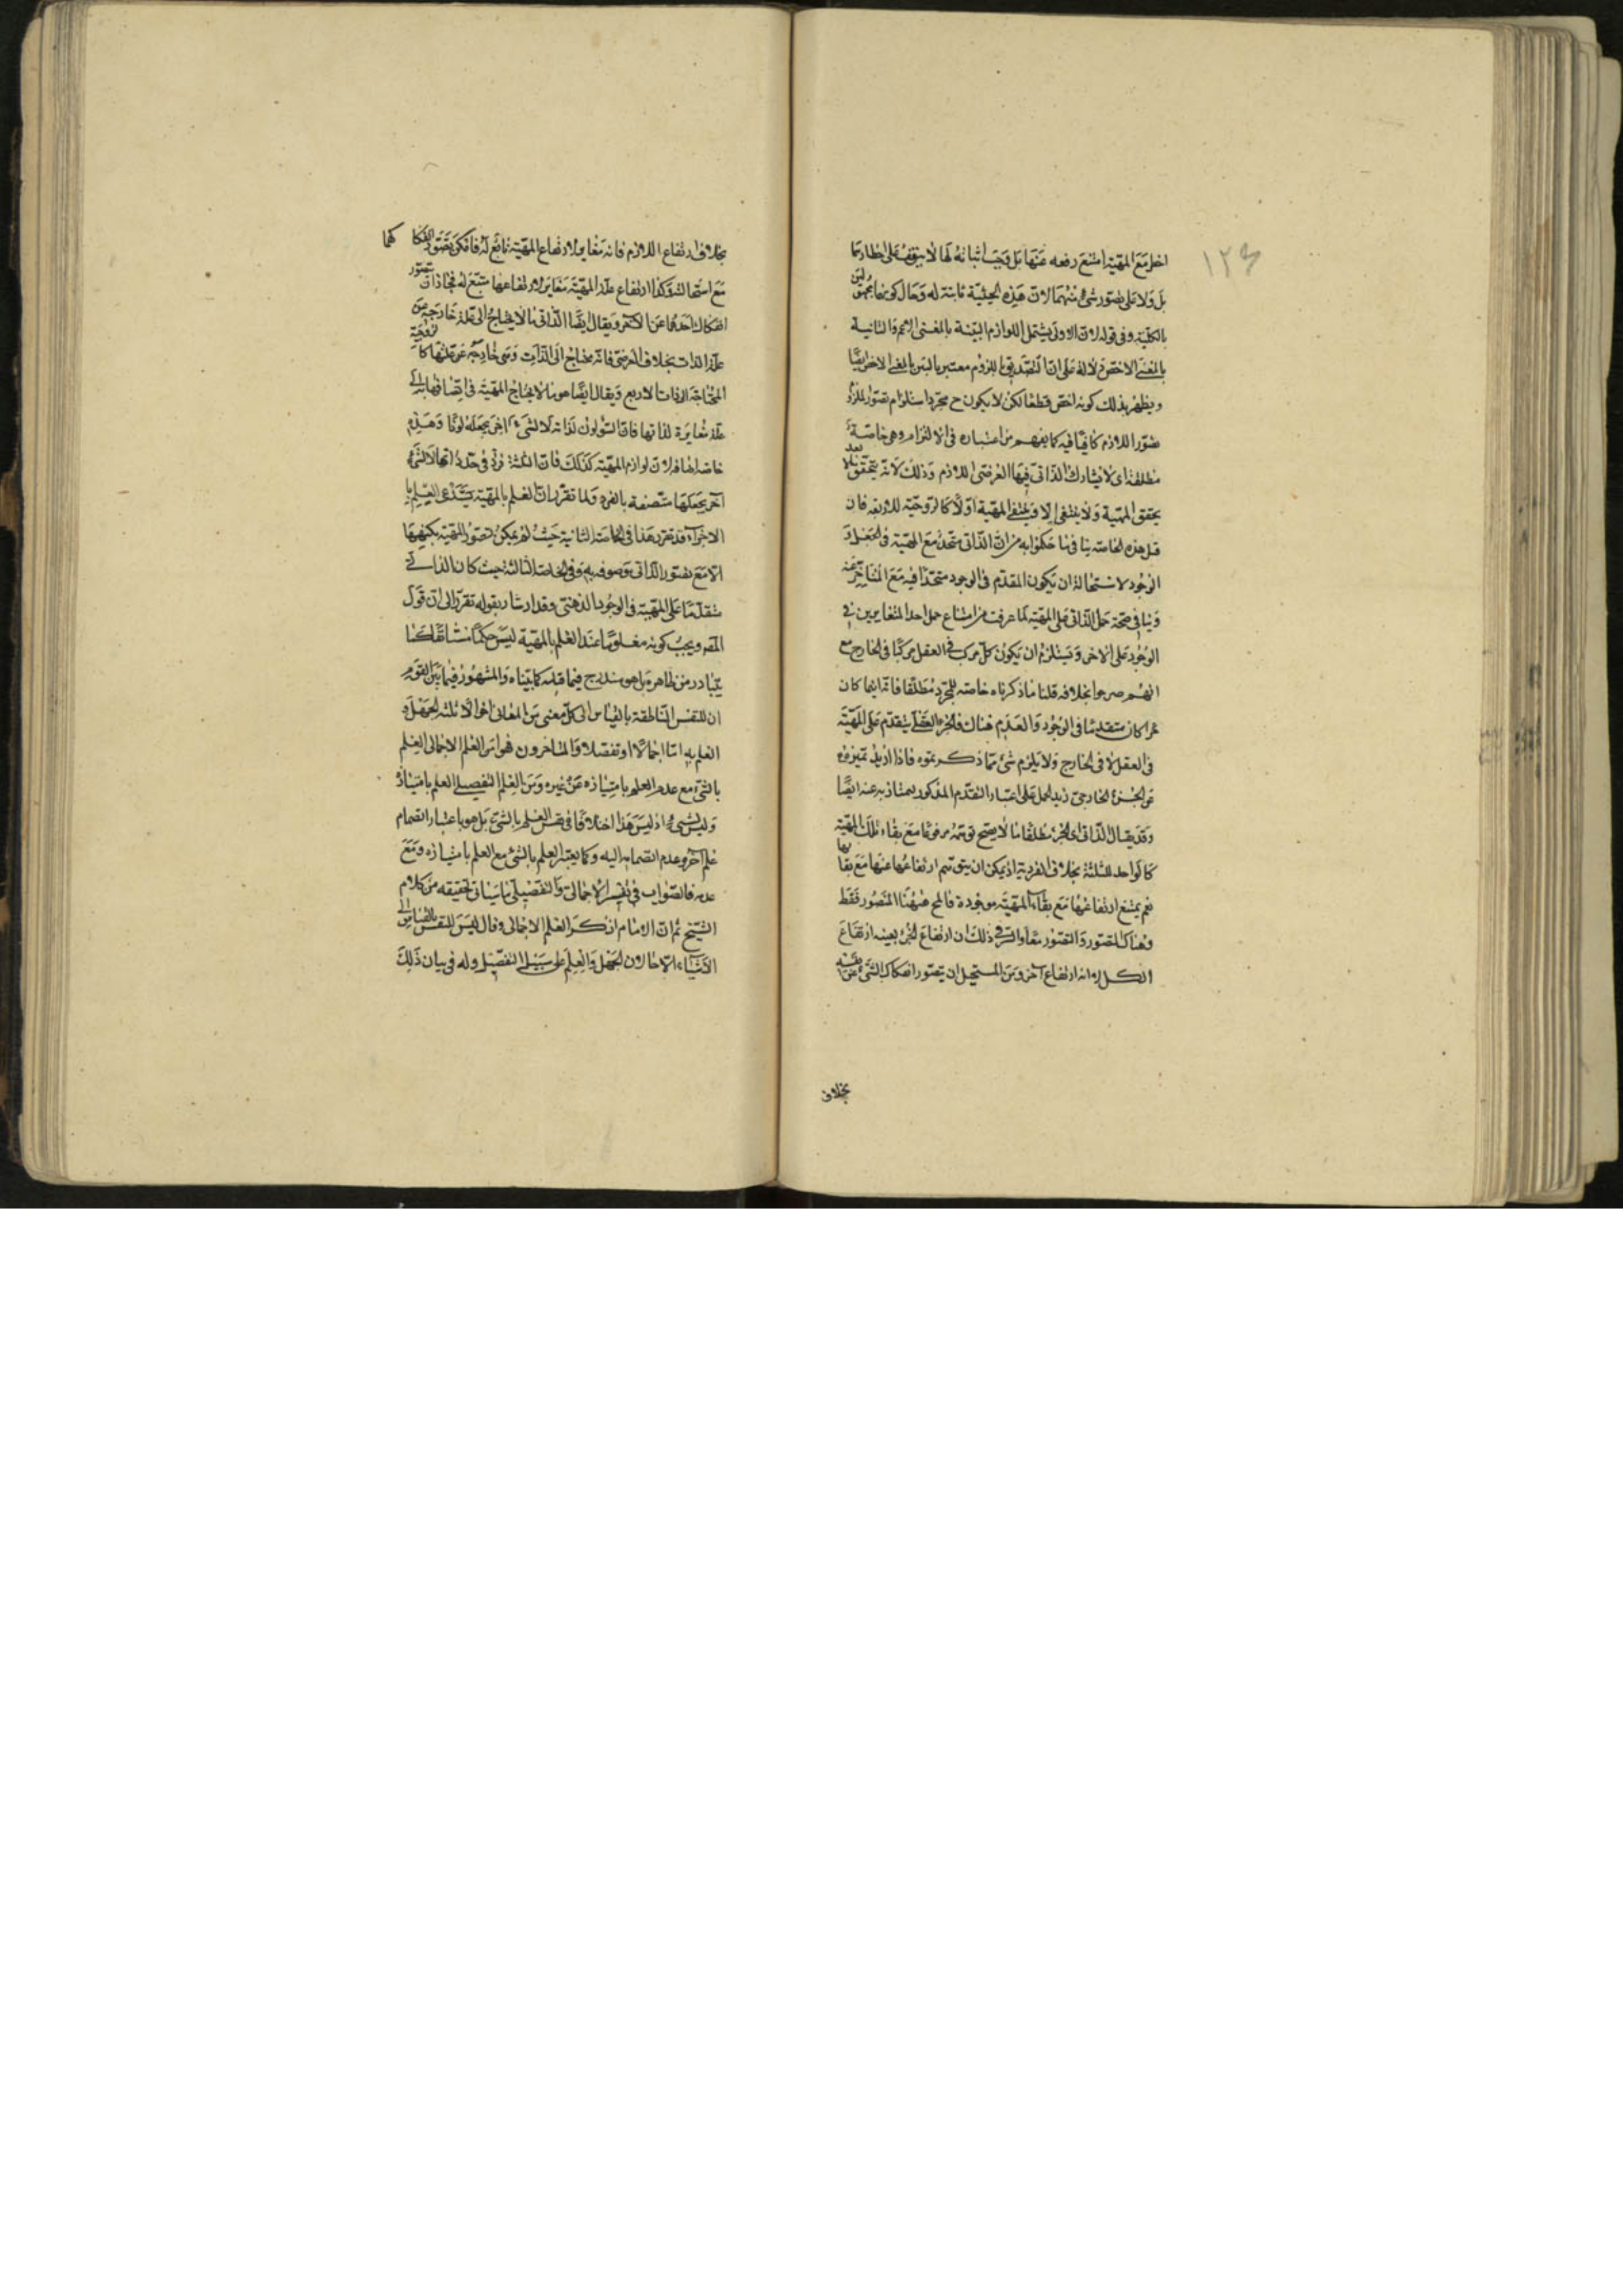 ١٢٤
اخل مع المهية امتنع رفعه عنها بل وجب اثباته لها لا يتوقف على اخطارهما
بل ولا على تصور شئ منهما لان هذه الحيثية ثابتة له وحال كونهما
بالكلية وفى قوله لان الاولى يشتمل اللوازم البينة بالمعنى الاعم والثانية
بالمعنى الاخص دلالة على ان التصديق باللزوم معتبر بالبين بالمعنى الاخص ايضا
ويظهر بذلك كونه اخص قطعا لكن لا يكون ح مجرد استلزام تصور الملزوم
تصور اللازم كافيا فيه كما يفهم من اعتباره فى الالتزام وهى خاصة
مطلقة اى لا يشارك الذاتى فيها العرضى اللازم وذلك لانه يتحقق بعد
يحقق المهية ولا ينتفى الا وينتفى المهية اولا كالزوجية للاربعة فان
قيل هذه الخاصة ينافى ما حكموا به من ان الذاتى متحد مع المهية فى الجعل و
الوجود لاستحالة ان يكون المقدم فى الوجود متحدا فيه مع المتاخر عنه
وينافى صحة حمل الذاتى على المهية لما عرفت من امتناع حمل احد المتغايرين فى
الوجود على الاخر ويستلزم ان يكون كل مركب فى العقل مركبا فى الخارج مع
انهم صرحوا بخلافه قلنا ما ذكرناه خاصة للجزء مطلقا فانه اينما كان
جزء كان متقدما فى الوجود والعدم هناك فالجزء العقلى يتقدم على المهية
فى العقل لا فى الخارج ولا يلزم شئ مما ذكرتموه فاذا اريد تميزه
عن الجزء الخارجى زيد الحمل على اعتبار التقدم المذكور ليمتاز به عنه ايضا
وقد يقال الذاتى اى الجزء مطلقا ما لا يصح توهمه مرفوعا مع بقاء تلك المهية
كالواحد للثلثة بخلاف الفردية اذ يمكن ان يتوهم ارتفاعها عنها مع بقائها
نعم يمتنع ارتفاعها مع بقاء المهية موجودة فالمح ههنا المتصور فقط
وهناك المتصور والتصور معا والسر فى ذلك ان ارتفاع الجزء بعينه ارتفاع
الكل لا انه ارتفاع آخر ومن المستحيل ان يتصور انفكاك الشئ عن نفسه
بخلاف
بخلاف ارتفاع اللازم فانه مغاير لارتفاع المهية تابع له فامكن تصور انفكا كهما
مع استحالته وكذا ارتفاع علة المهية مغاير لارتفاعها مستتبع له فجاز ان تصور
انفكاك احدهما عن الآخر ويقال ايضا الذاتى ما لا يحتاج الى علة خارجة عن
علة الذات بخلاف العرضى فانه محتاج الى الذات وهى خارجة عن علتها كالزوجية
المحتاجة الى ذات الاربع ويقال ايضا هو ما لا يحتاج المهية فى اتصافها به الى
علة مغايرة لذاتها فان السواد لون لذاته لا لشئ آخر يجعله لونا وهذه
خاصة اضافية لان لوازم المهية كذلك فان الثلثة فرد فى حد ذاتها لا لشئ
آخر يجعلها متصفة بالفرد ولما تقرر ان العلم بالمهية يستدعى العلم با
الاجزاء قد تقرر هذا فى الخاصة الثانية حيث لم يمكن تصور المهية بكنهها
الا مع تصور الذاتى موصوفة به وفى الخاصة الثالثة حيث كان الذاتى
متقدما على المهية فى الوجود الذهنى وقد اشار بقوله تقرر الى ان قول
المصـ ويجب كونه معلوما عند العلم بالمهية ليس حكما مستانفا كما
يتبادر من ظاهره بل هو مندرج فيما قبله كما بيناه والمشهور فيما بين القوم
ان للنفس الناطقة بالقياس الى كل معنى من المعانى احوالا ثلثة الجهل و
العلم به اما اجمالا او تفصيلا والمتاخرون فسروا العلم الاجمالى بالعلم
بالشئ مع عدم العلم بامتيازه عن غيره ومن العلم التفصيلى العلم بامتيازه
وليس بشئ اذ ليس هذا اختلافا فى نفس العلم بالشئ بل هو باعتبار انضمام
علم آخر وعدم انضمامه اليه وكما يعتبر العلم بالشئ مع العلم بامتيازه ومع
عدمه فالصواب فى تفسير الاجمالى والتفصيلى ما سياتى تحقيقه من كلام
الشيخ ثم ان الامام انكر العلم الاجمالى وقال ليس للنفس بالقياس الى
الاشياء الا حالان الجهل والعلم على سبيل التفصيل وله فى بيان ذلك